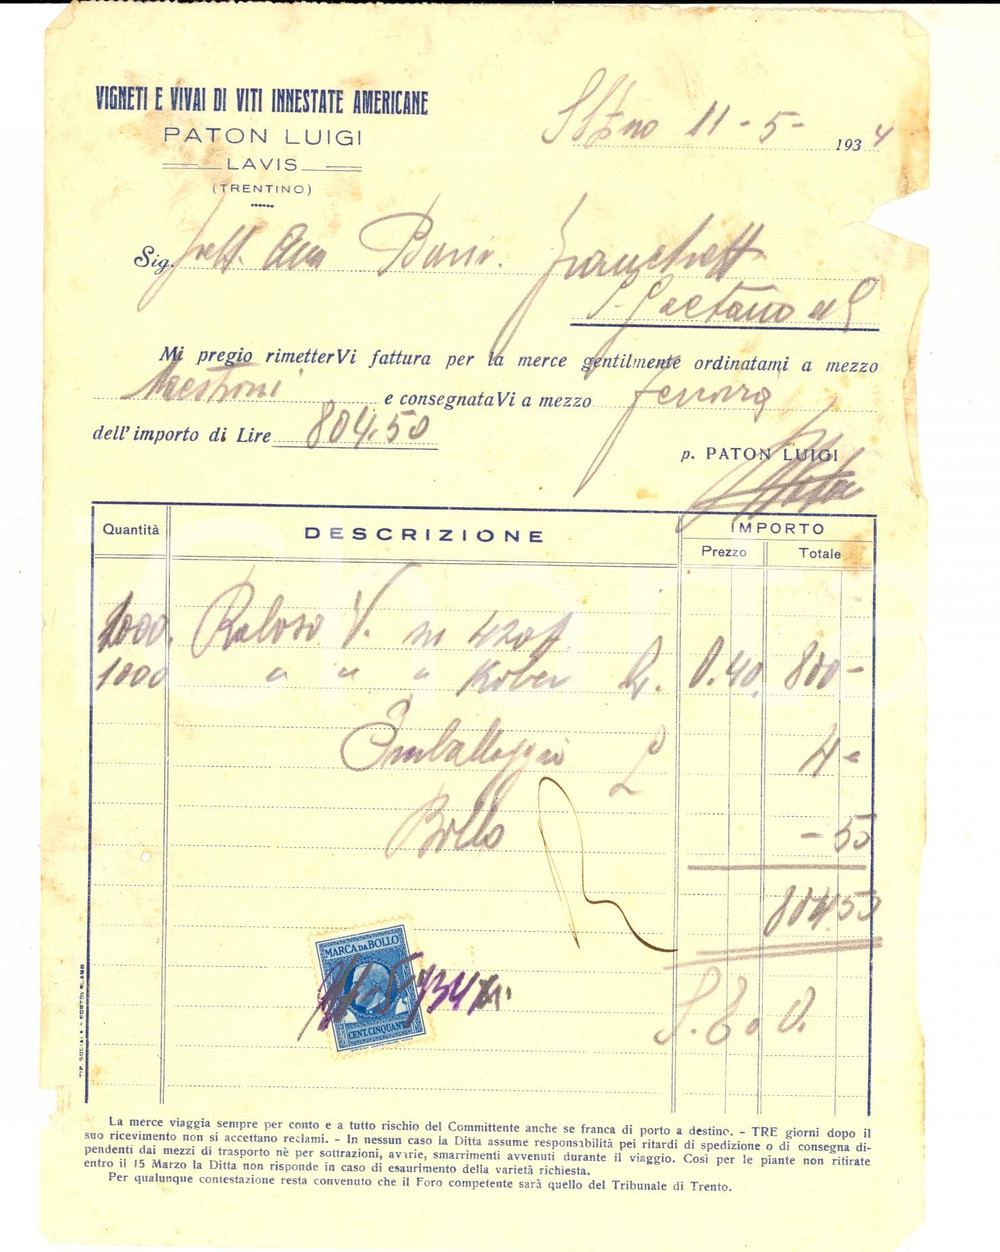 VIGNETI E VIVAI DI VITI INNESTATE AMERICANE
PATON LUIGI
LAVIS
(TRENTINO)
11-5- 1934
Sig. Franchetti
S. Gaetano
Mi pregio rimetterVi fattura per la merce gentilmente ordinatami a mezzo
Maestroni e consegnataVi a mezzo ferrovia
dell'importo di Lire 804.50
p. PATON LUIGI
Quantità DESCRIZIONE IMPORTO
Prezzo Totale
1000. Raboso V. su 420A
1000 " " " Kober L. 0.40. 800-
Imballaggio L 4-
Bollo -50
804.50
MARCA DA BOLLO
11-5-934
CENT. CINQUANTA
S. E. O.
TIP. SOCIALE - CORTOS MLAMO
La merce viaggia sempre per conto e a tutto rischio del Committente anche se franca di porto a destino. - TRE giorni dopo il
suo ricevimento non si accettano reclami. - In nessun caso la Ditta assume responsabilità pei ritardi di spedizione o di consegna di-
pendenti dai mezzi di trasporto nè per sottrazioni, avarie, smarrimenti avvenuti durante il viaggio. Così per le piante non ritirate
entro il 15 Marzo la Ditta non risponde in caso di esaurimento della varietà richiesta.
Per qualunque contestazione resta convenuto che il Foro competente sarà quello del Tribunale di Trento.